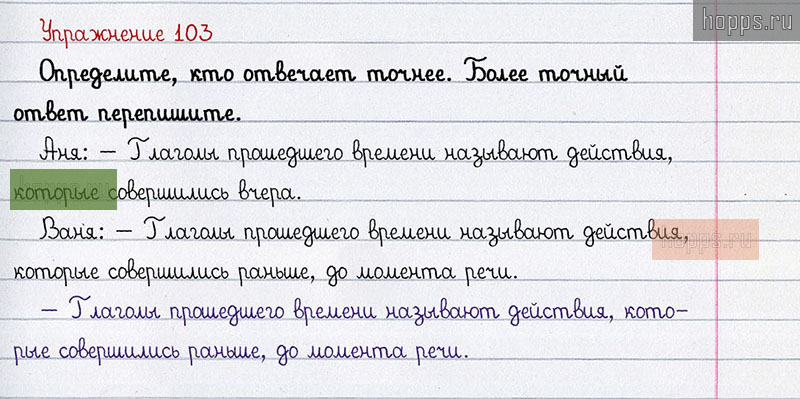 hopps.ru
Упражнение 103
Определите, кто отвечает точнее. Более точный
ответ перепишите.
Аня: – Глаголы прошедшего времени называют действия,
которые совершились вчера.
Ваня: – Глаголы прошедшего времени называют действия,
hopps.ru
которые совершились раньше, до момента речи.
– Глаголы прошедшего времени называют действия, кото-
рые совершились раньше, до момента речи.